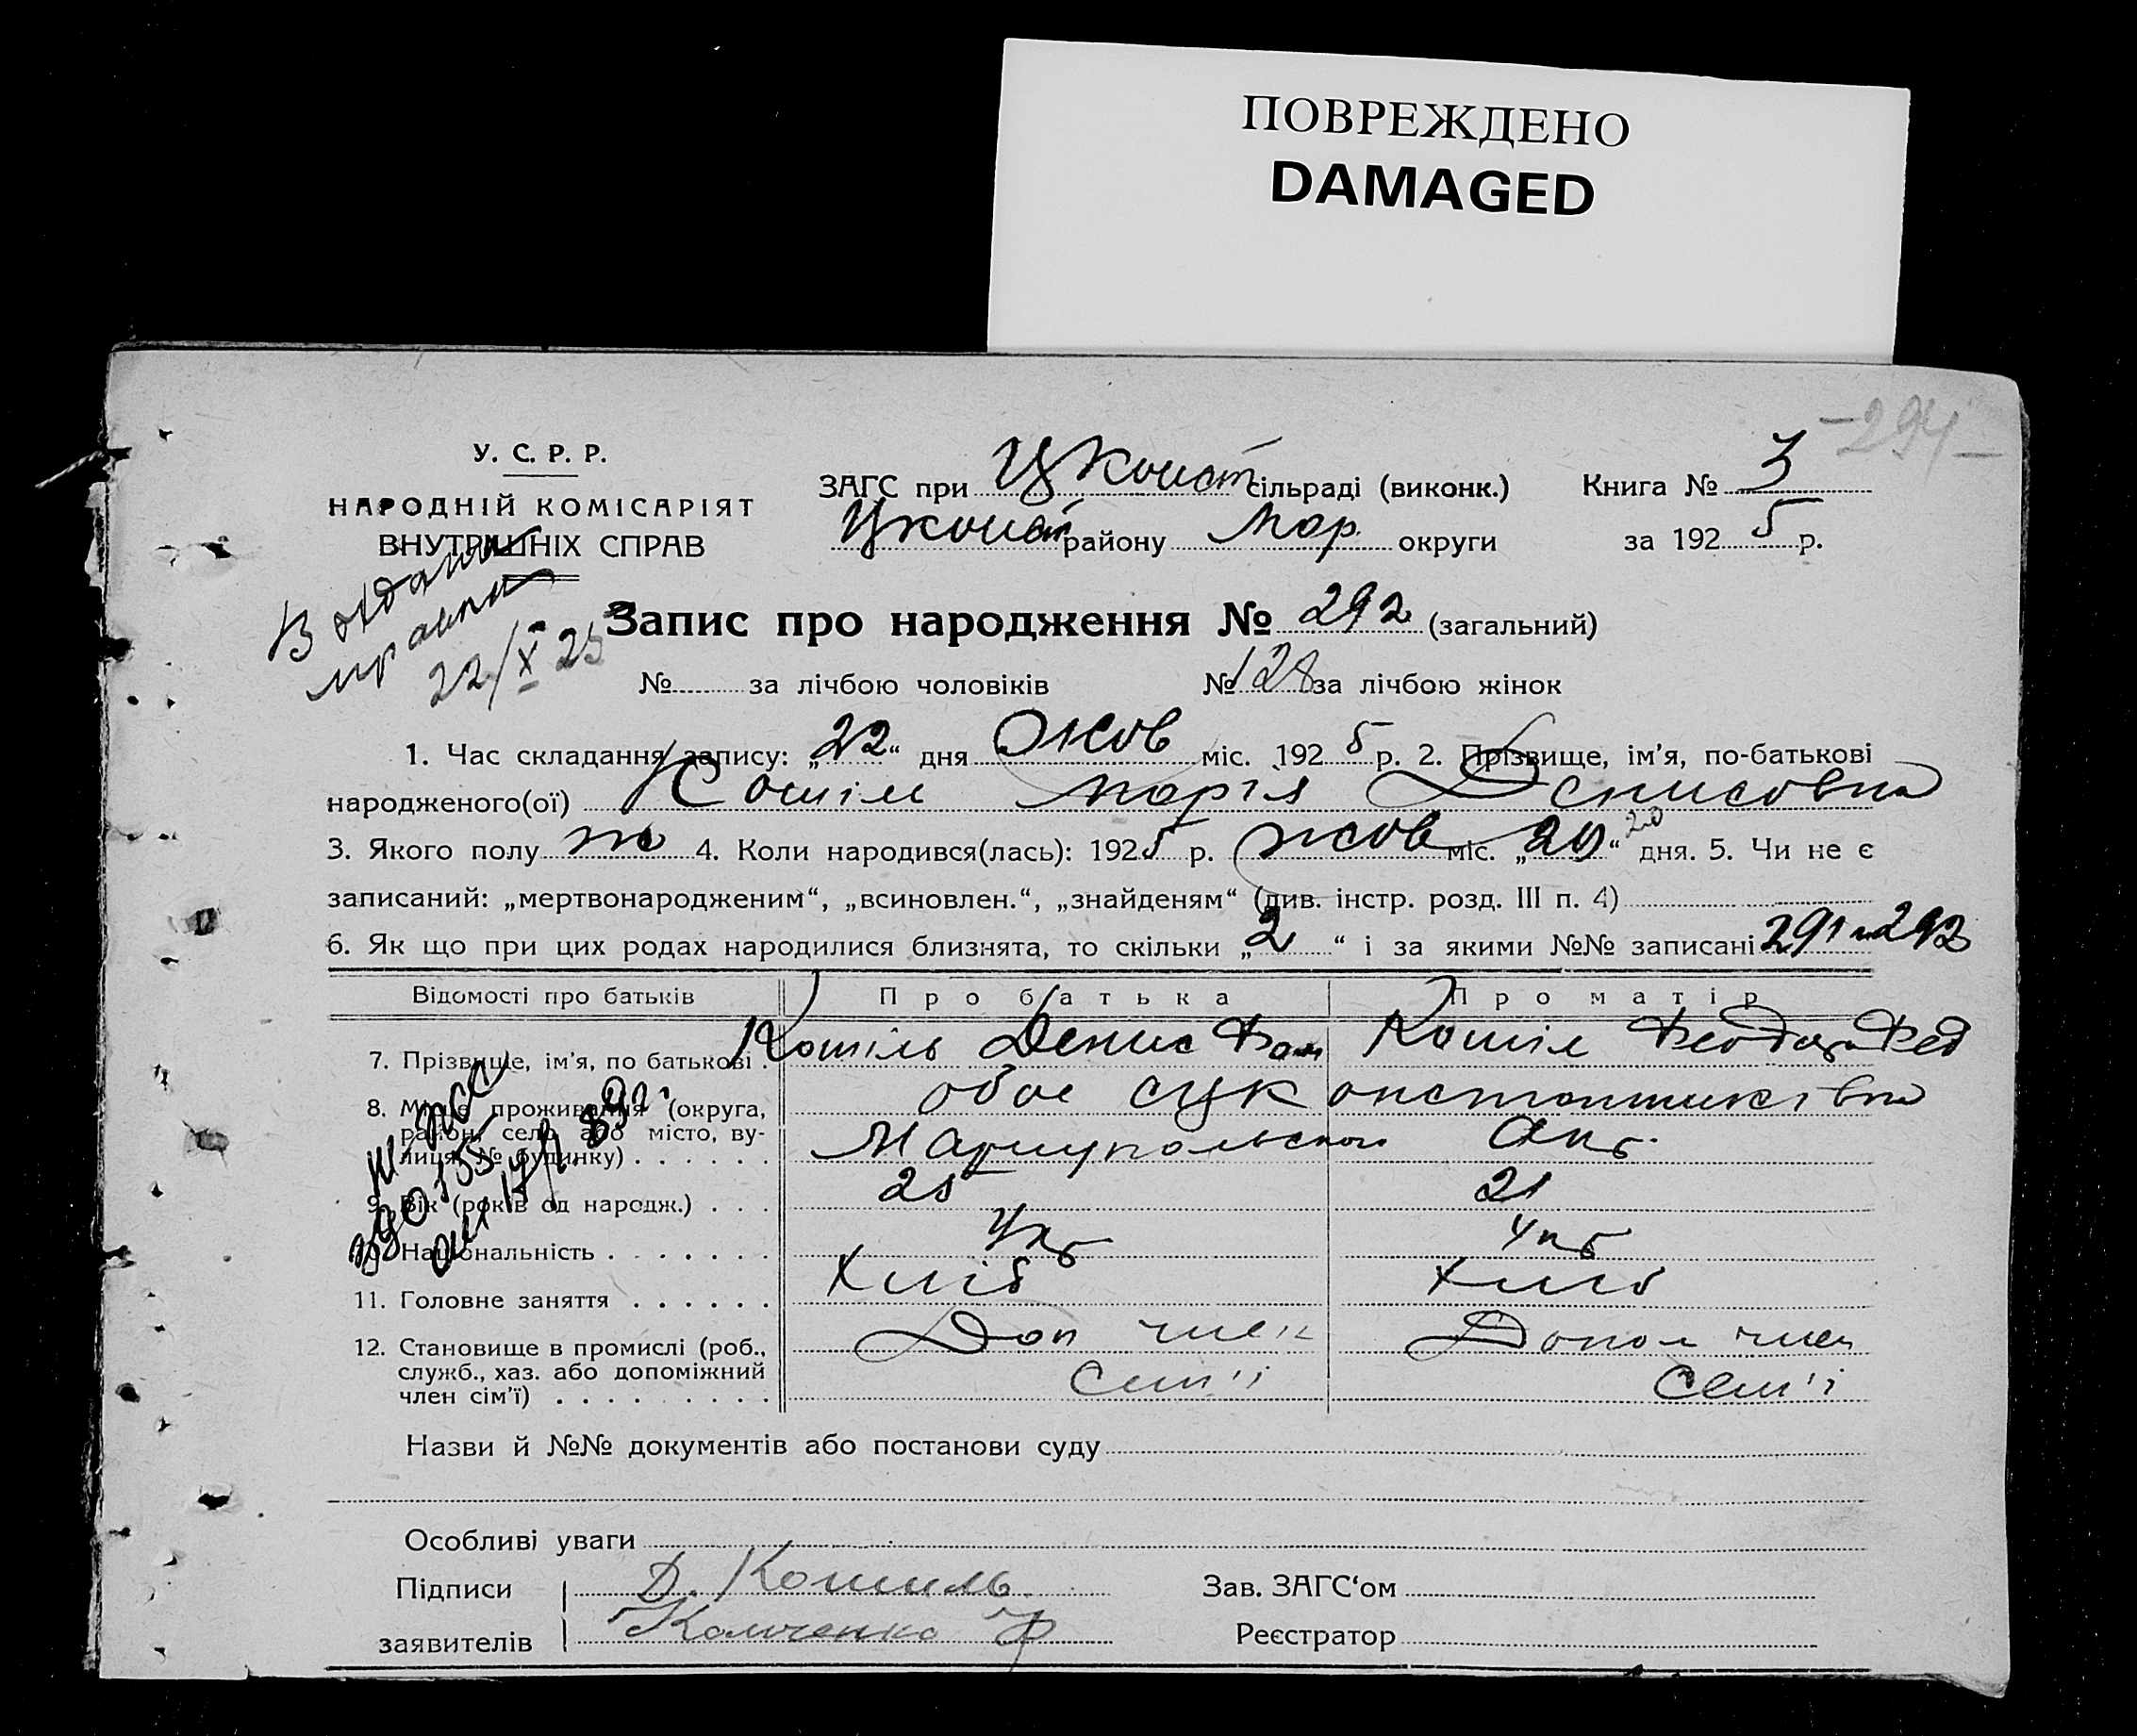 ПОВРЕЖДЕНО
DAMAGED
294
У. С. Р. Р.
НАРОДНІЙ КОМІСАРІЯТ
ВНУТРІШНІХ СПРАВ
ЗАГС при Цконст сільраді (виконк.)
Цконст району Мар. округи
Книга № 3
за 1925 р.
22/X 25
Запис про народження № 292 (загальний)
№ за лічбою чоловіків № 128 за лічбою жінок
1. Час складання запису: „22“ дня Жов міс. 1925 р. 2. Прізвище, ім’я, по-батькові
народженого(ої) Кошіль Марія Денисовна
3. Якого полу ж 4. Коли народився(лась): 1925 р. жов міс. „20“ 20 дня. 5. Чи не є
записаний: „мертвонародженим“, „всиновлен.“, „знайденям“ (див. інстр. розд. III п. 4)
6. Як що при цих родах народилися близнята, то скільки „2“ і за якими №№ записані 291 и 292
Відомості про батьків Про батька Про матір
7. Прізвище, ім’я, по батькові . Кошіль Денис Кошіль Феодора Фед
8. Місце проживання (округа, район, село або місто, вулиця, № будинку) . . . . . . обое сцконстантиновка
Мариупольского Окр.
9. Вік (років од народж.) . . . 25 21
10. Національність . . . . . . . Укр Укр
11. Головне заняття . . . . . . Хліб Хліб
12. Становище в промислі (роб., Доп член Допом член
служб., хаз. або допоміжний Сем'ї Сем'ї
член сім’ї) . . . . . . . . .
Назви й №№ документів або постанови суду
Особливі уваги
Підписи Д. Кошиль Зав. ЗАГС‘ом
заявителів Реєстратор